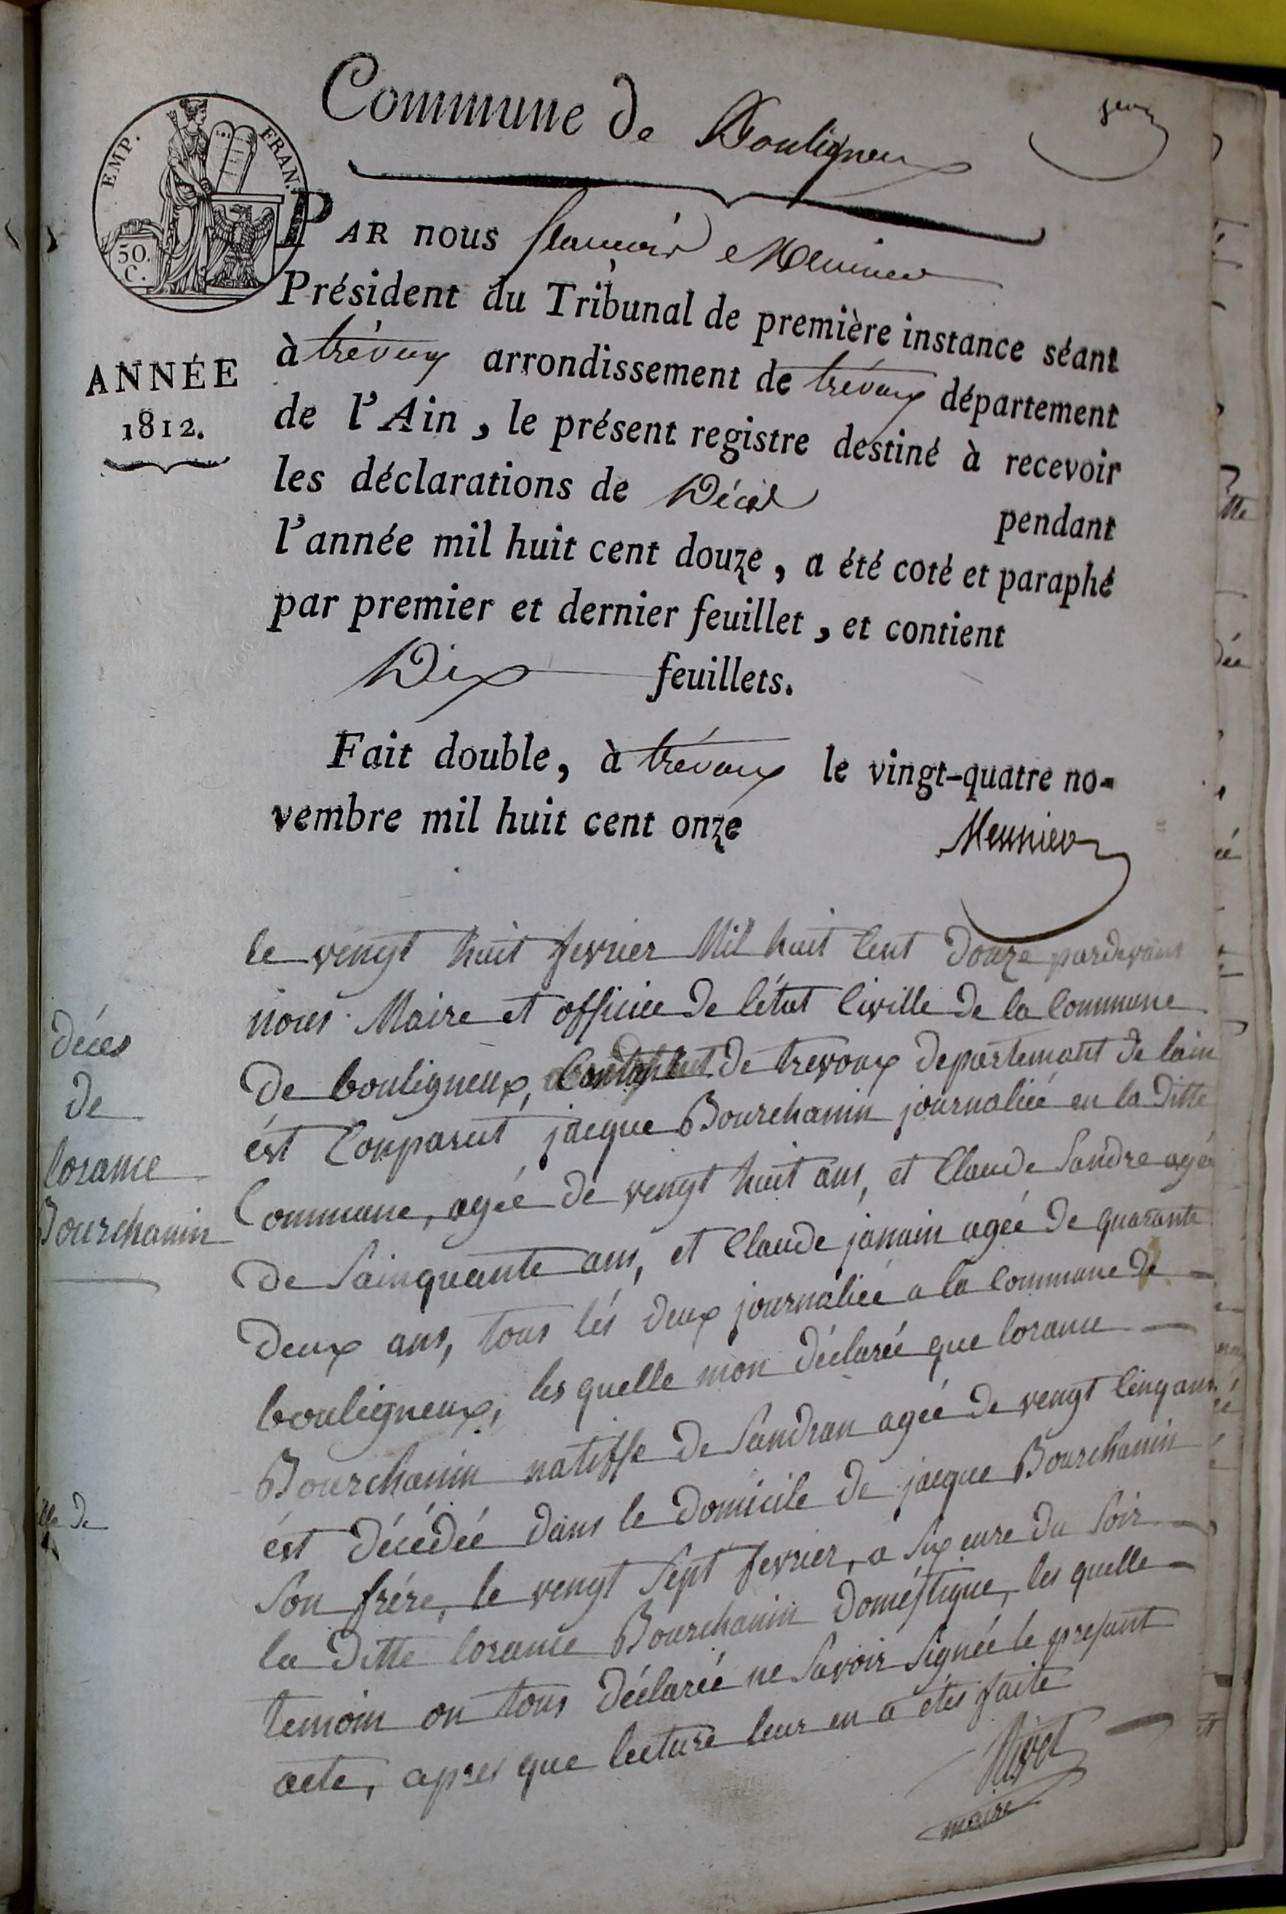 Commune de Bouligneux
EMP. FRAN.
50. C.
PAR nous françois Meunier
Président du Tribunal de première instance séant
à trévoux arrondissement de trévoux département
ANNÉE
1812.
de l'Ain, le présent registre destiné à recevoir
les déclarations de Décès pendant
l'année mil huit cent douze, a été coté et paraphé
par premier et dernier feuillet, et contient
Dix feuillets.
Fait double, à trévoux le vingt-quatre no-
vembre mil huit cent onze
Meunier
décés
de
lorance
Bourchanin
le vengt huit fevrier Mil huit Cent Douze pardevant
nous Maire et officiee de létat Civille de la Commune
de bouligneux, de trevoux departemant de lain
ést Conparut jacque Bourchanin journaliée en la ditte
Commune, agée de vengt huit ans, et Claude Sandre agée
de Sainquante ans, et Claude janain agée de quarante
deux ans, tous lés deux journaliée a la Commune de
bouligneux, les quelle mon déclarée que lorance
Bourchanin natiffe de Sandran agée de vengt Cinq ans
ést décédée dans le domicile de jacque Bourchanin
Son frére, le vengt Sept fevrier, a Six eure du Soir
la ditte lorance Bourchanin doméstique, les quelle
temoin on tous déclarée ne Savoir Signée le presant
acte, apres que lecture leur en a étés faite
maire